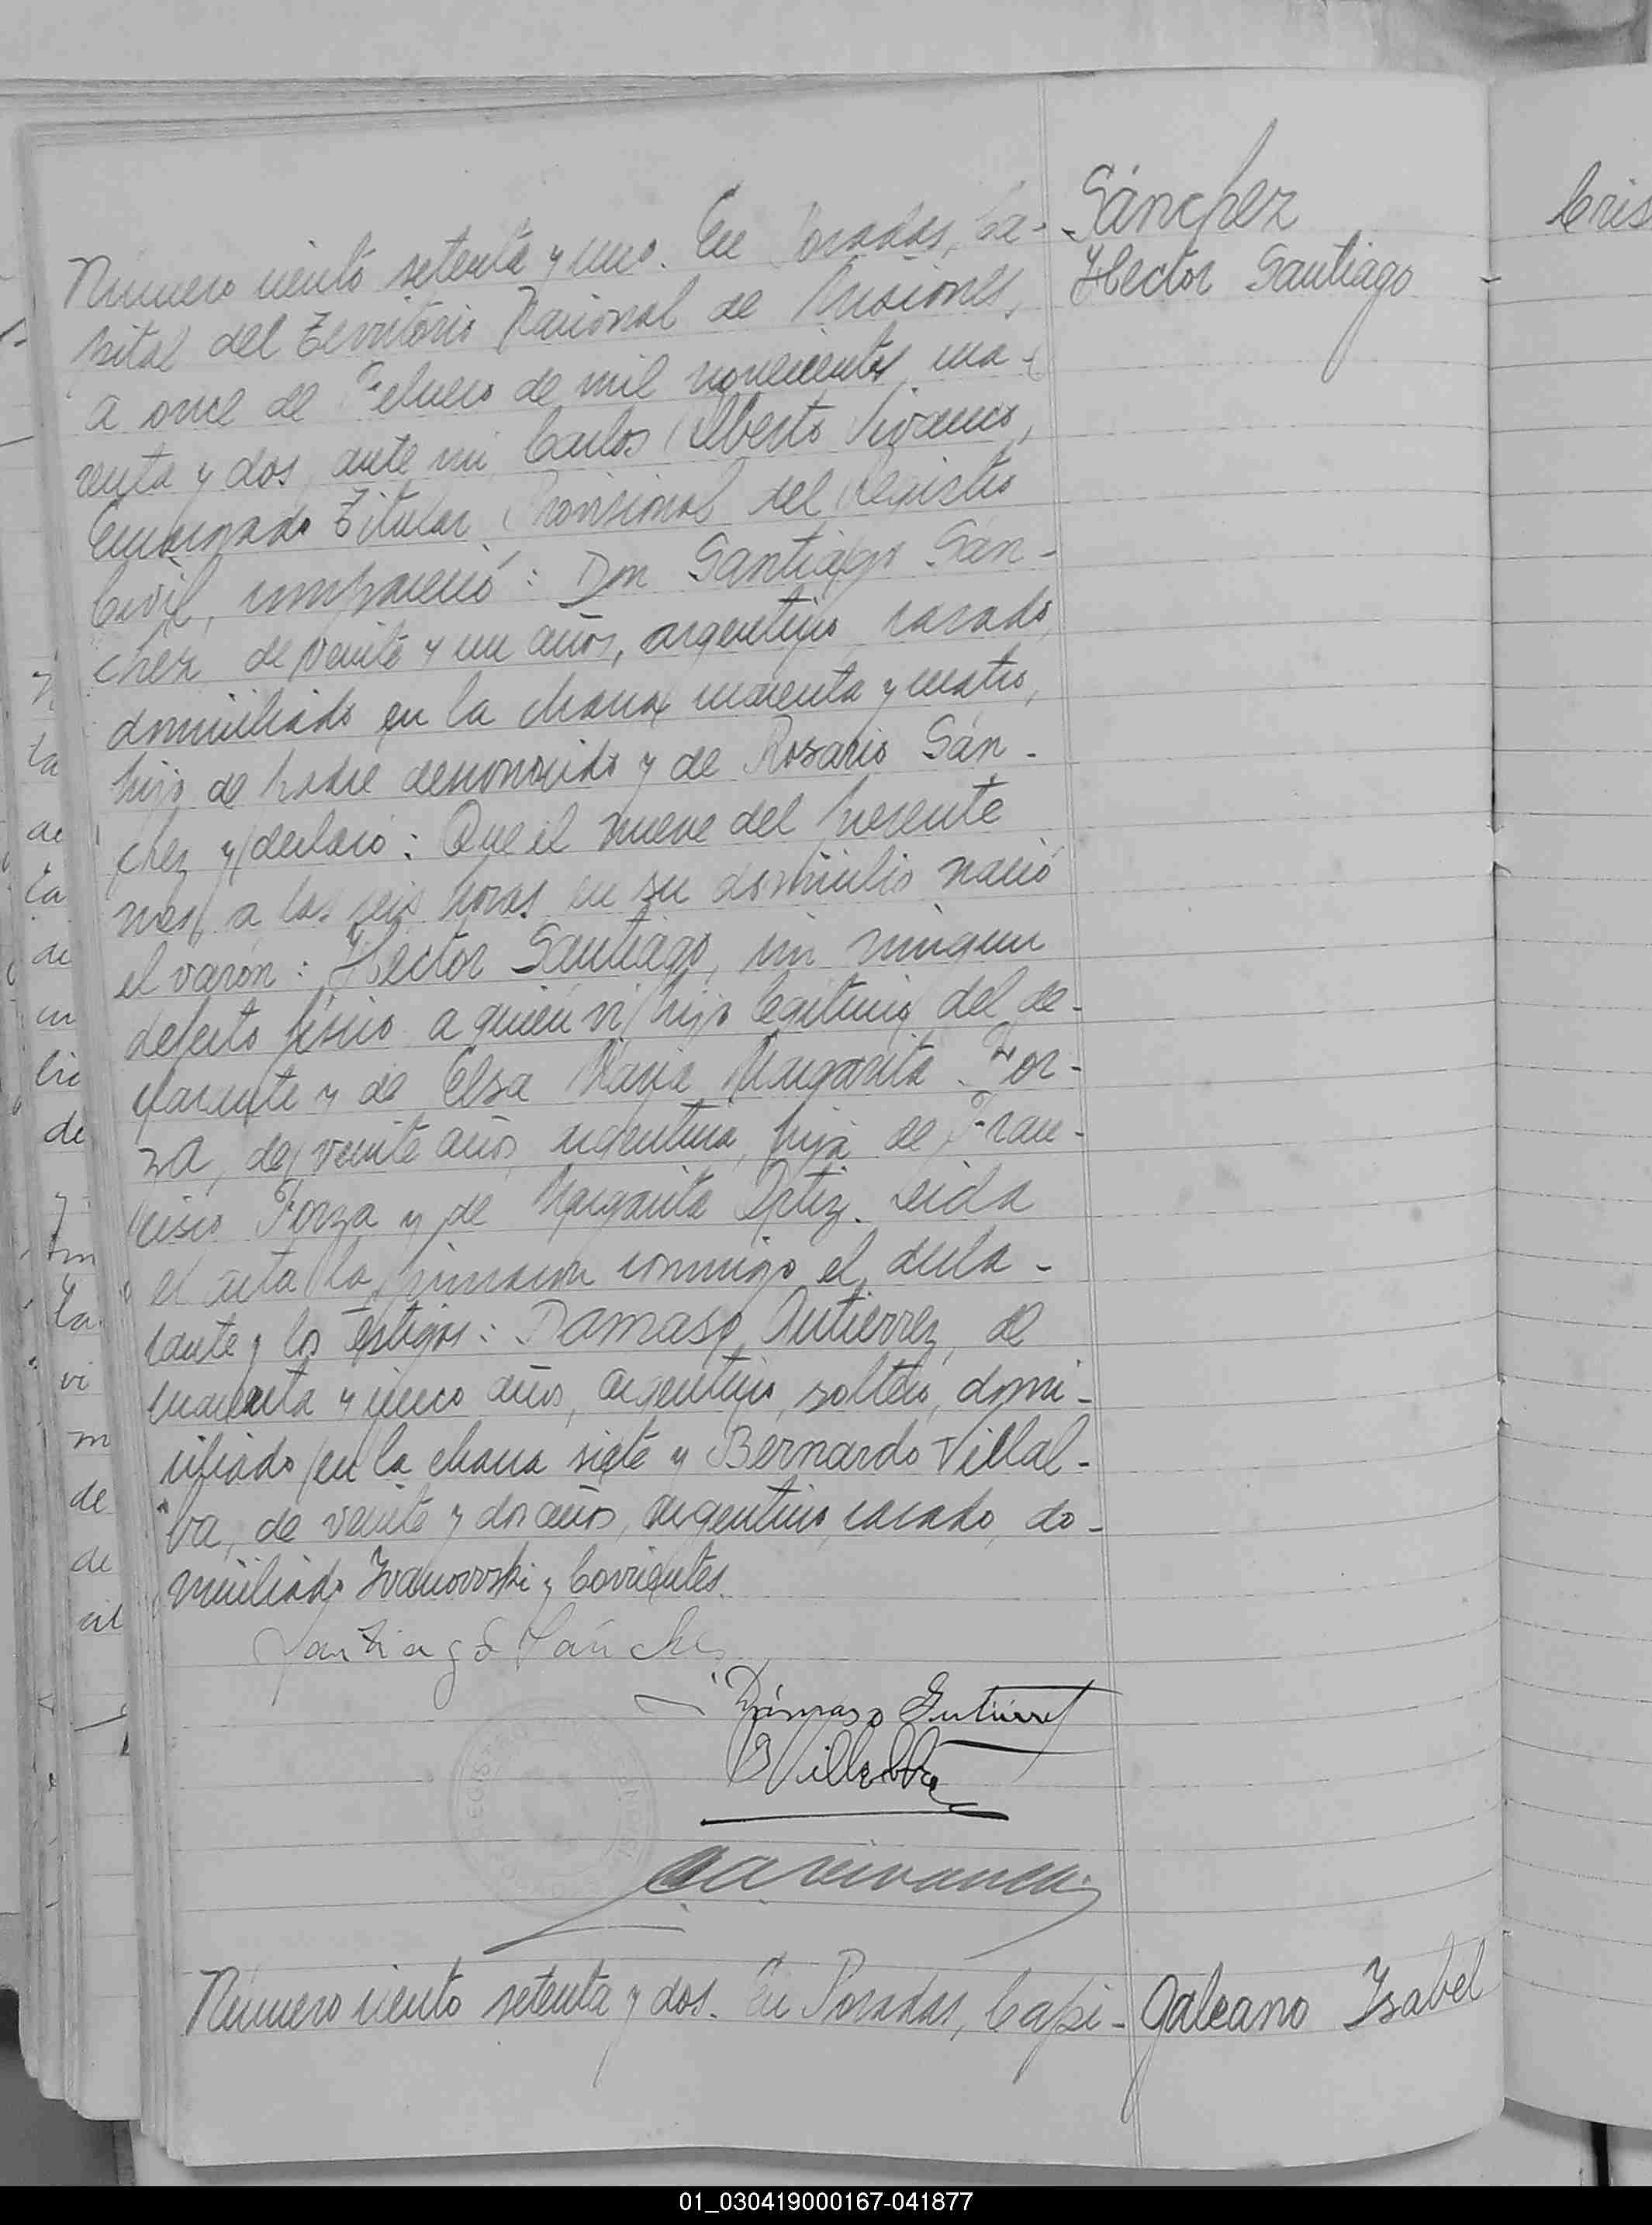 Sánchez
Hector Santiago
Número ciento setenta y uno. En Posadas, Ca-
pital del Territorio Nacional de Misiones,
a once de Febrero de mil novecientos cua-
renta y dos, ante mi, Carlos Alberto Vivanco,
Encargado Titular Provisional del Registro
Civil, compareció: Don Santiago Sán-
chez de veinte y un años, argentino, casado,
domiciliado en la chacra cuarenta y cuatro,
hijo de padre desconocido y de Rosario Sán-
chez y declaró: Que el nueve del presente
mes, a las seis horas en su domicilio nació
el varón: Hector Santiago, sin ningun
defecto físico a quien vi, hijo legitimo del de-
clarante y de Elsa Maria Margarita For-
za, de veinte años, argentina, hija de Fran-
cisco Forza y de Margarita Ortiz. Leida
el acta la firmaron conmigo el decla-
rante y los testigos: Damaso Gutierrez, de
cuarenta y cinco años, argentino, soltero, domi-
ciliado en la chacra siete y Bernardo Villal-
ba, de veinte y dos años, argentino, casado, do-
miciliado Ivanovski y Corrientes.
Santiago Sánchez
Dámaso Gutierrez
B Villalba
C A Vivanco
Número ciento setenta y dos. En Posadas, Capi-
Galeano Isabel
Cris
01_030419000167-041877